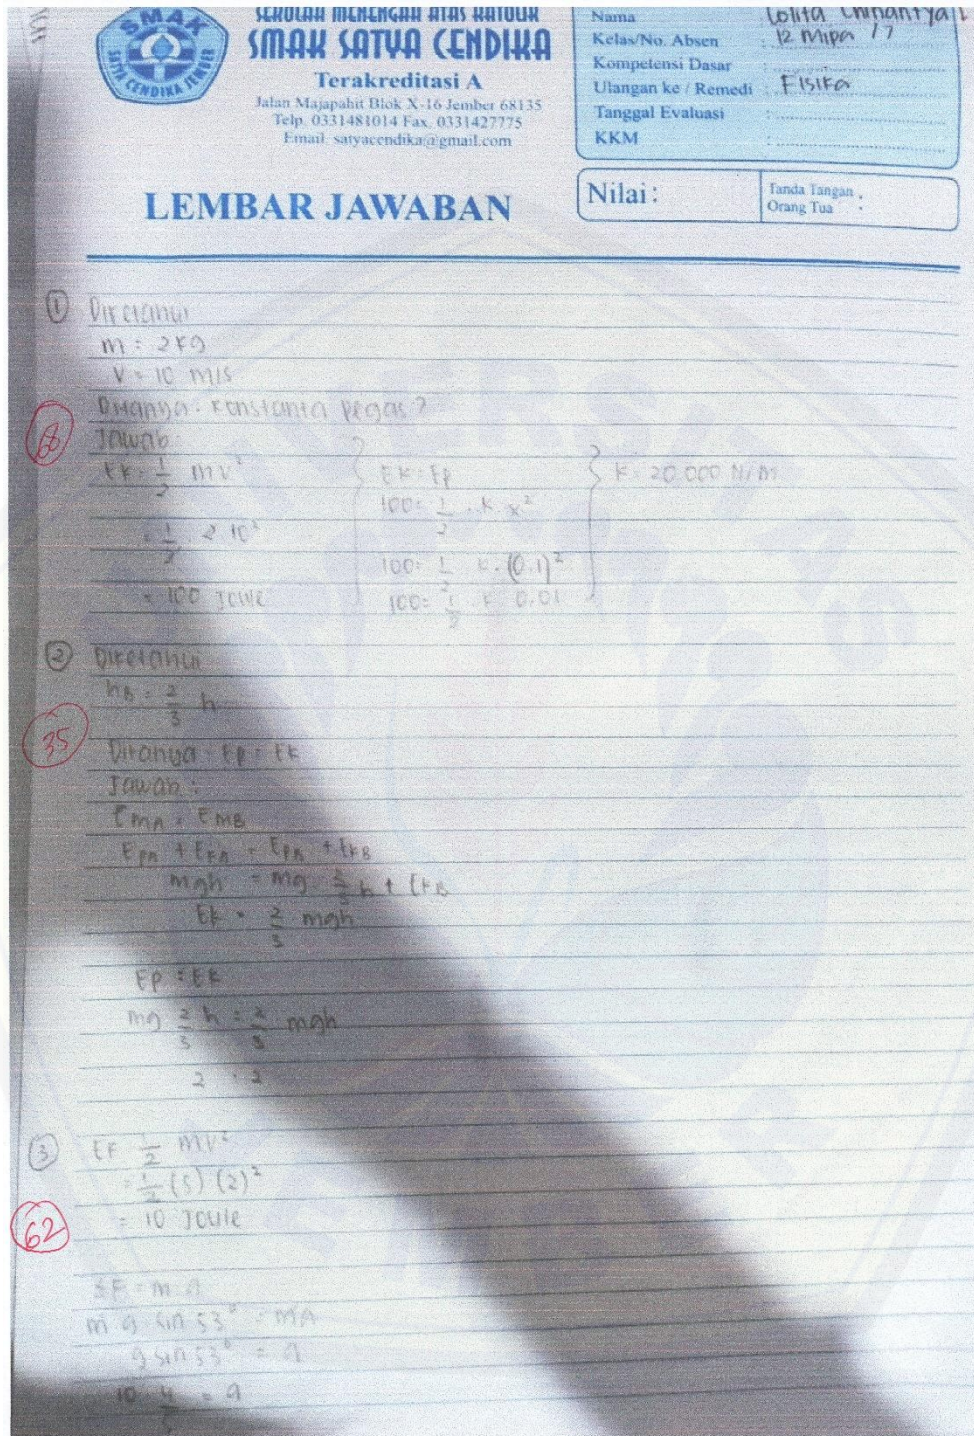 SMAK
SATYA CENDIKA JEMBER
SEKOLAH MENENGAH ATAS KATOLIK
SMAK SATYA CENDIKA
Terakreditasi A
Jalan Majapahit Blok X-16 Jember 68135
Telp. 0331481014 Fax. 0331427775
Email. satyacendika@gmail.com
Nama Lolita
Kelas/No. Absen : 12 Mipa / 7
Kompetensi Dasar :
Ulangan ke / Remedi : Fisika
Tanggal Evaluasi :
KKM :
LEMBAR JAWABAN
Nilai :
Tanda Tangan
Orang Tua :
① Diketahui
m = 2 kg
V = 10 m/s
Ditanya : Konstanta pegas ?
68
Jawab :
Ek = 1/2 mv²
= 1/2 . 2 10²
= 100 Joule
Ek = Ep
100 = 1/2 . k x²
100 = 1/2 k . (0.1)²
100 = 1/2 . k 0.01
k = 20.000 N/m
② Diketahui
hB = 2/3 h
35
Ditanya : Ep = Ek
Jawab :
EMA = EMB
EPA + EKA = EPB + EKB
mgh = mg 2/3 h + EKB
Ek = 2/3 mgh
Ep = Ek
mg 2/3 h = 2/3 mgh
2 . 2
③ Ek 1/2 mv²
= 1/2 (5) (2)²
= 10 Joule
62
ΣF = m a
m g sin 53° = ma
g sin 53° = a
10 . 4/5 = a